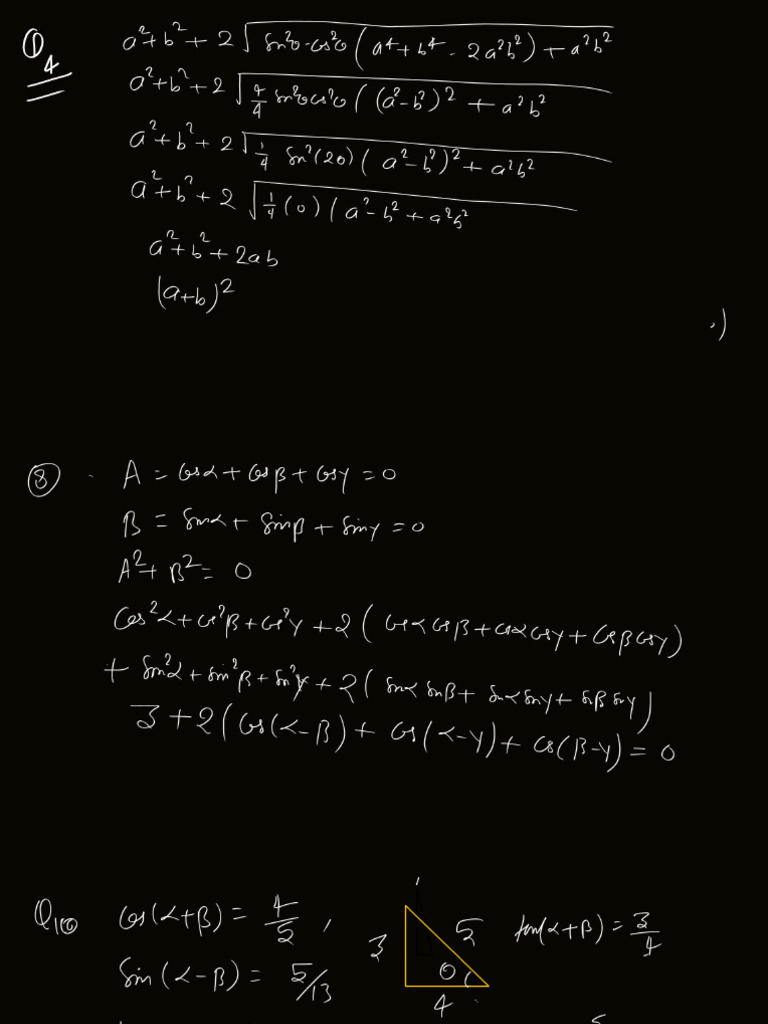 Q4
a²+b²+2√(sin²θ·cos²θ(a⁴+b⁴-2a²b²)+a²b²
a²+b²+2√(4/4 sin²θcos²θ((a²-b²)²+a²b²
a²+b²+2√(1/4 sin²(2θ)(a²-b²)²+a²b²
a²+b²+2√(1/4(0)(a²-b²+a²b²
a²+b²+2ab
(a+b)²
8
A = cosα+cosβ+cosγ=0
B = sinα+sinβ+sinγ=0
A²+B²=0
cos²α+cos²β+cos²γ+2(cosαcosβ+cosαcosγ+cosβcosγ)
+sin²α+sin²β+sin²γ+2(sinαsinβ+sinαsinγ+sinβsinγ)
3+2(cos(α-β)+cos(α-γ)+cos(β-γ)=0
Q10 cos(α+β)=4/5, 3 5 4 θ tan(α+β)=3/4
sin(α-β)=5/13